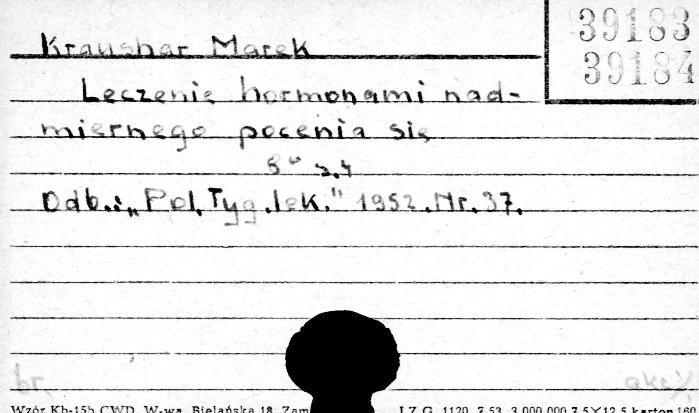 39183
39184
Kraushar Marek
Leczenie hormonami nad-
miernego pocenia się
8° s.4
Odb.: „Pol. Tyg. lek." 1952. Nr. 37.
br. akc
Wzór Kb-15b CWD, W-wa, Bielańska 18, Zam I.Z.G. 1120. 7.53. 3.000.000 7,5×12,5 karton